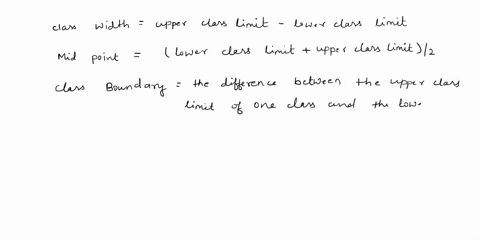 class width = upper class limit - lower class limit
Mid point = (lower class limit + upper class limit)/2
class Boundary = the difference between the upper class
limit of one class and the low